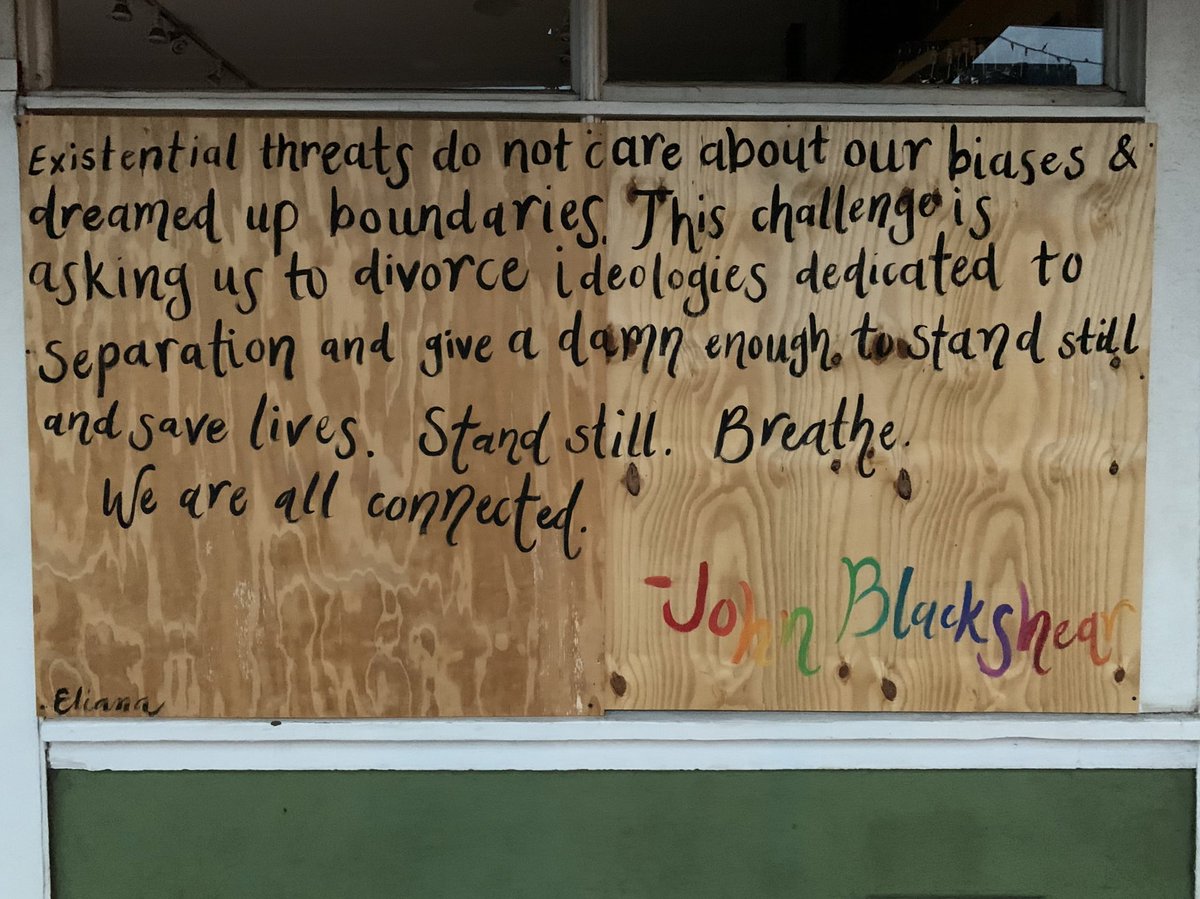 Existential threats do not care about our biases &
dreamed up boundaries. This challenge is
asking us to divorce ideologies dedicated to
separation and give a damn enough to stand still
and save lives. Stand still. Breathe.
We are all connected.
-John Blackshear
Eliana